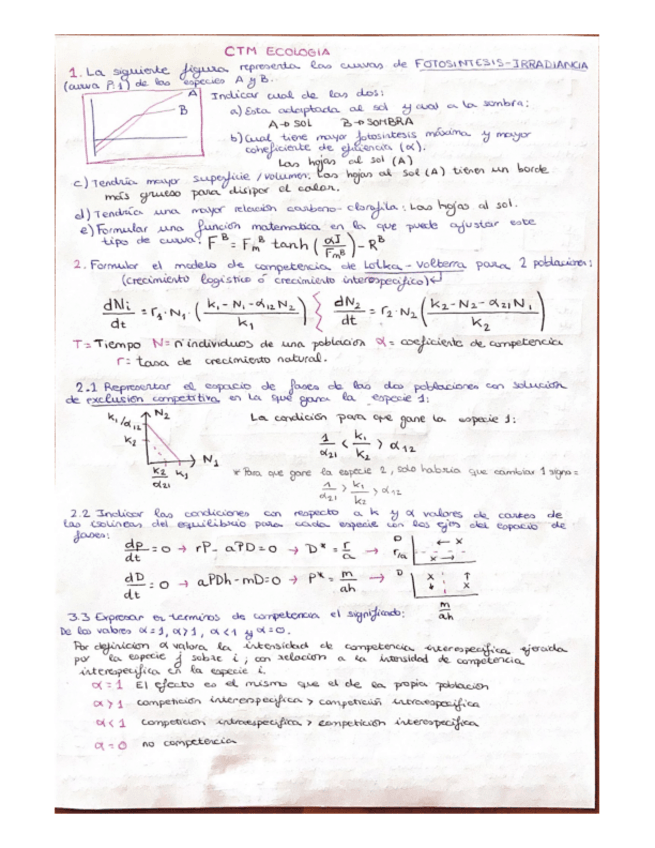 CTM ECOLOGIA
1. La siguiente figura representa las curvas de FOTOSINTESIS-IRRADIANCIA
(curva P:1) de las especies A y B.
A
B
Indicar cual de las dos:
a) Esta adaptada al sol y cual a la sombra:
A → SOL B → SOMBRA
b) Cual tiene mayor fotosintesis máxima y mayor
coheficiente de eficiencia (α).
Las hojas al sol (A)
c) Tendría mayor superficie/volumen: Las hojas al sol (A) tienen un borde
más grueso para disipar el calor.
d) Tendría una mayor relación carbono-clorofila: Las hojas al sol.
e) Formular una función matematica en la que puede ajustar este
tipo de curva: F^B = F_m^B tanh (αI / F_m^B) - R^B
2. Formular el modelo de competencia de Lotka-Volterra para 2 poblaciones:
(crecimiento logístico ó crecimiento interespecífico)
dNi/dt = r1·N1·(k1-N1-α12N2 / k1) dN2/dt = r2·N2(k2-N2-α21N1 / k2)
T= Tiempo N= nº individuos de una población α= coeficiente de competencia
r= tasa de crecimiento natural.
2.1 Representar el espacio de fases de las dos poblaciones con solución
de exclusión competitiva en la que gana la especie 1:
k1/α12
N2
k2
N1
k2/α21
k1
La condición para que gane la especie 1:
1/α21 < k1/k2 > α12
* Para que gane la especie 2, solo habría que cambiar 1 signo=
1/α21 > k1/k2 > α12
2.2 Indicar las condiciones con respecto a k y α valores de cortes de
las isolineas del equilibrio para cada especie con los ejes del espacio de
fases:
dP/dt = 0 → rP - aPD = 0 → D* = r/a →
D
r/a
← x
x →
dD/dt = 0 → aPDh - mD = 0 → P* = m/ah →
D
x ↓
↑ x
m/ah
3.3 Expresar en terminos de competencia el significado:
De los valores α=1, α>1, α<1 y α=0.
Por definicion α valora la intensidad de competencia interespecifica ejercida
por la especie j sobre i, con relacion a la intensidad de competencia
interespecifica en la especie i.
α = 1 El efecto es el mismo que el de la propia población
α > 1 competición interespecífica > competición intraespecífica
α < 1 competición intraespecífica > competición interespecífica
α = 0 no competencia